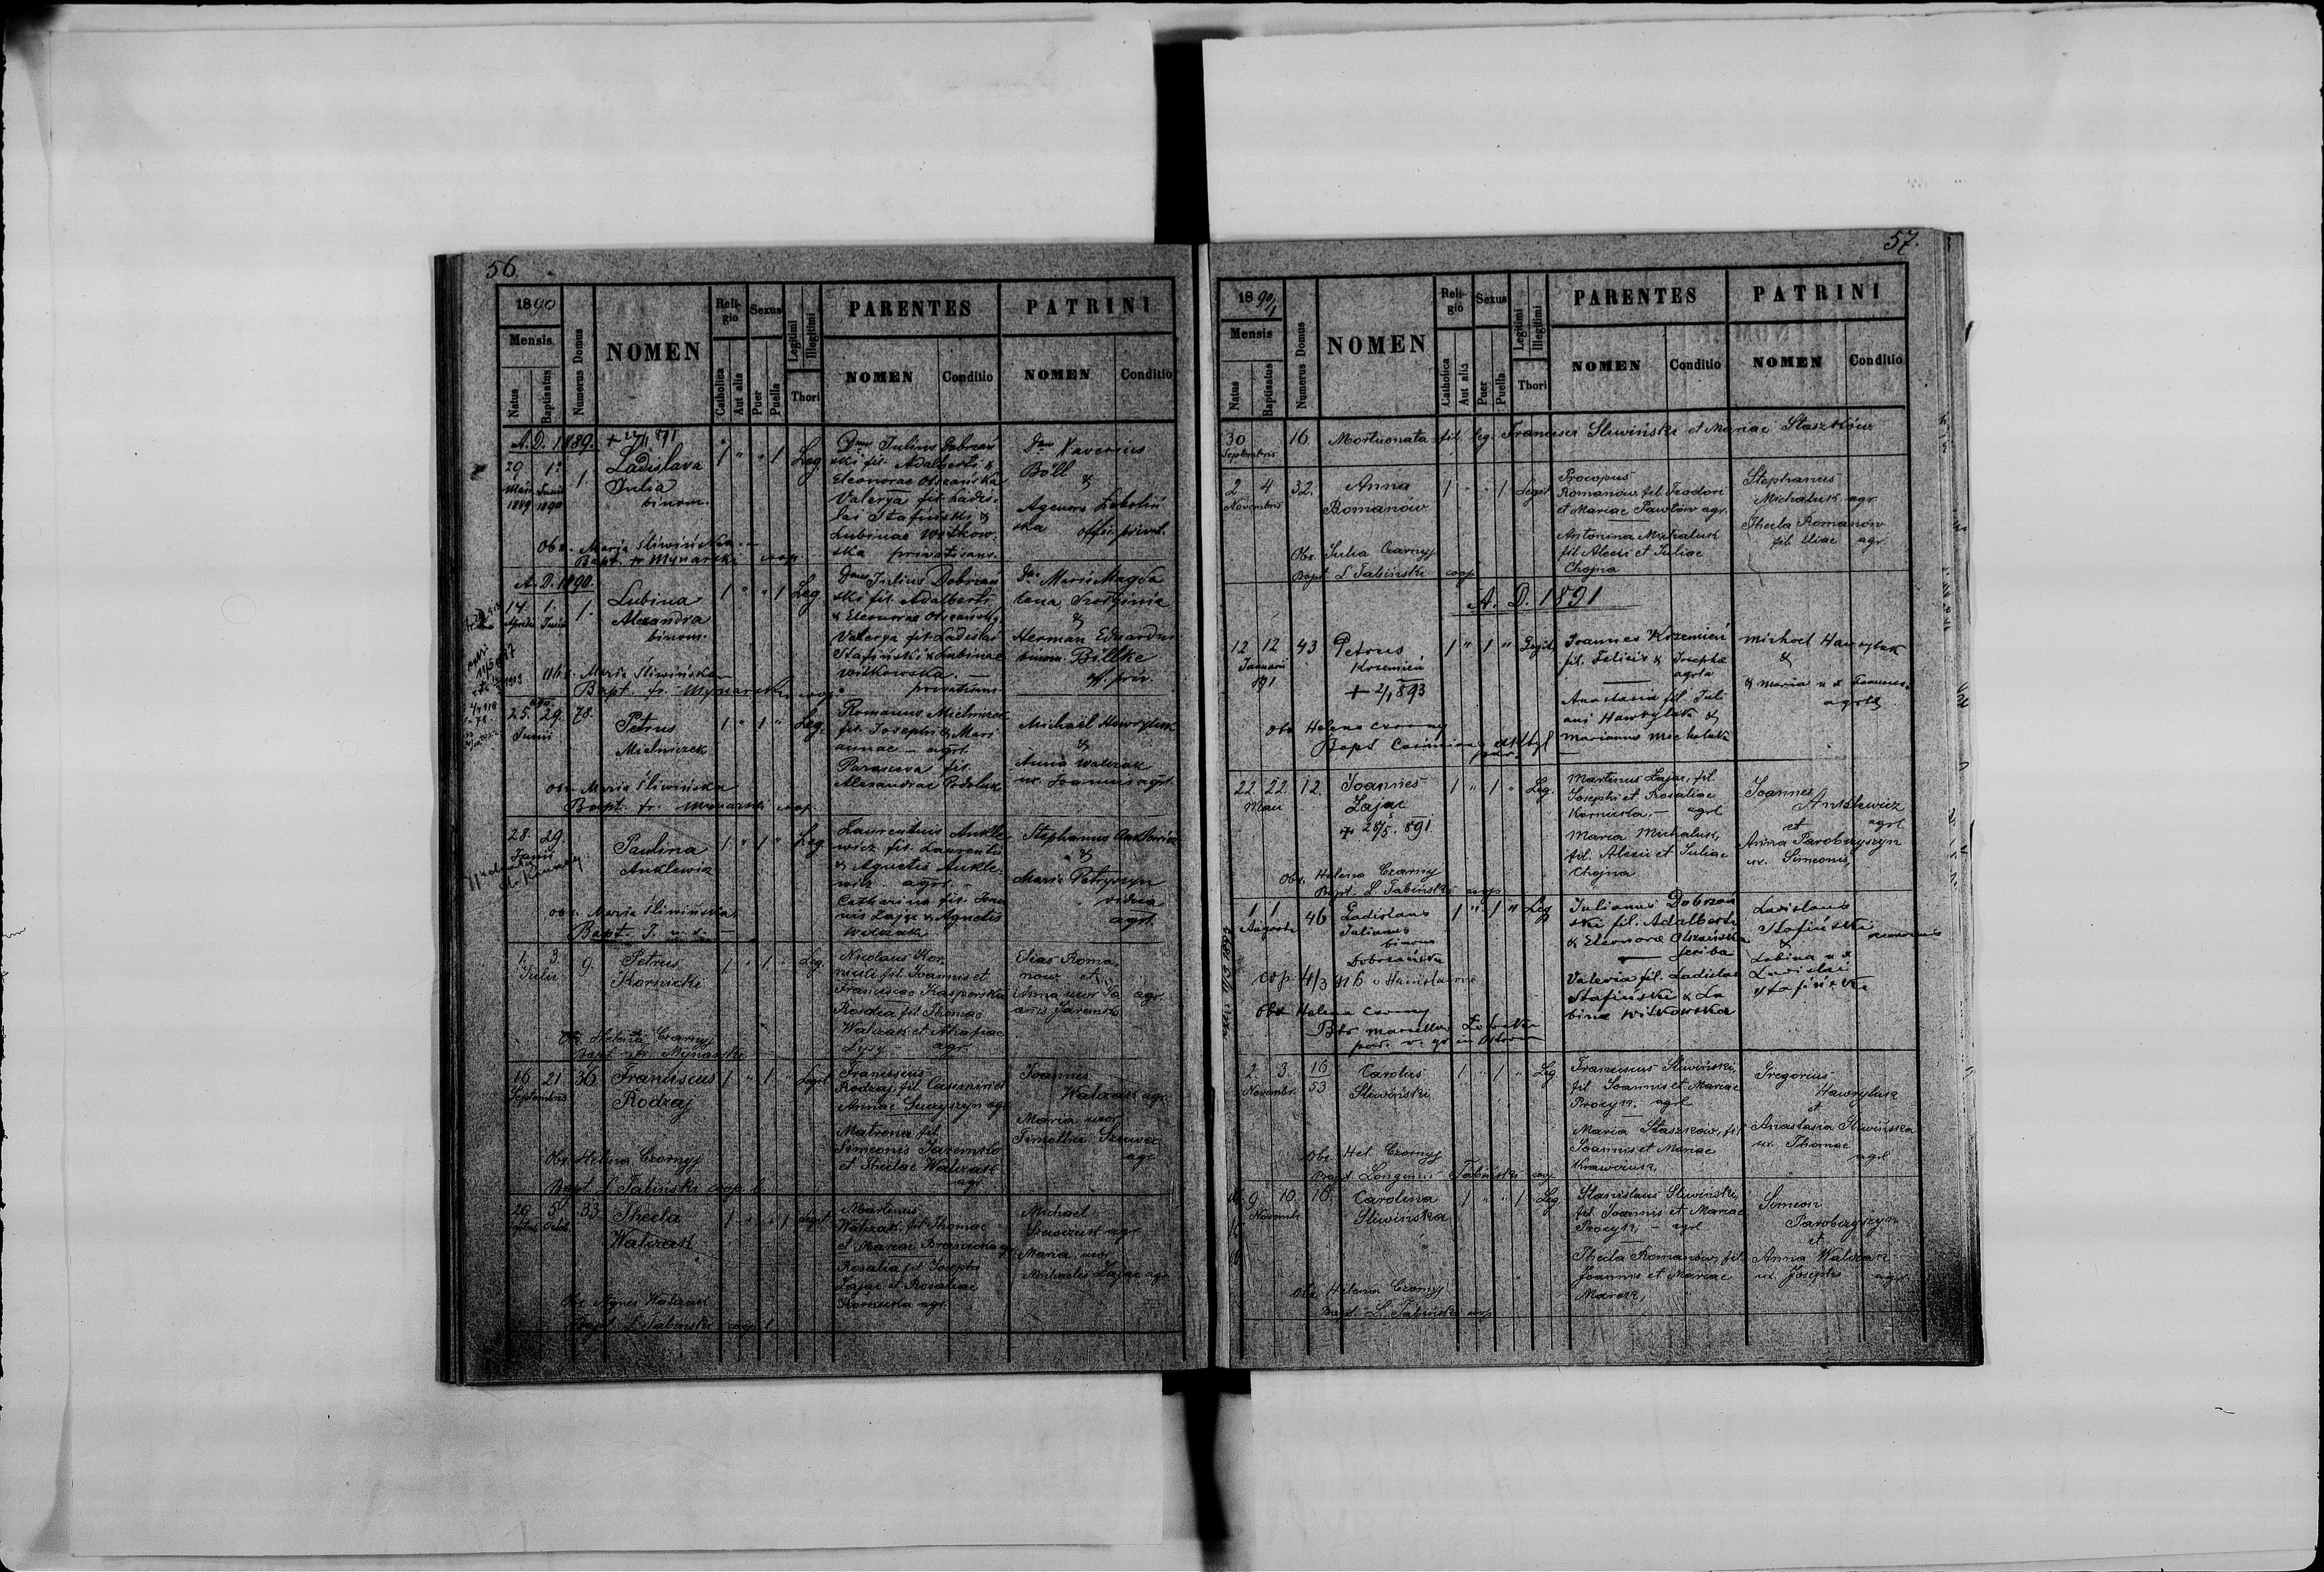 56.
1890
Mensis
Natus
Baptisatus
Numerus Domus
NOMEN
Religio
Catholica
Aut alia
Sexus
Puer
Puella
Legitimi
Illegitimi
Thori
PARENTES
NOMEN
Conditio
PATRINI
NOMEN
Conditio
A.D. 1889.
29 1.
Maii Junii
1889 1890
1.
Ladislava
Julia
binom.
1 " " 1 Leg
Dnus Julius Dobrzań
ski fil. Adalberti &
Eleonorae Olszańska
Valerya fil. Ladis-
lai Stafiński &
Lubinae Witkow-
ska privatisans.
Xaverius
Böll
&
ska offic. privat.
Obs. Maria Śliwińska
Bapt. fr Mynarski coop.
A.D. 1890.
14. 1.
Aprilis Junii
1.
Lubina
Alexandra
binom.
1 " " 1 Leg
Dnus Julius Dobrzań
ski fil. Adalberti
& Eleonorae Olszańska
Valerya fil. Ladislai
Stafiński & Lubinae
Witkowska. —
privatisans.
Maria Magda
lena
&
Herman Eduardus
binom. Billke
of. priv.
Obs. Maria Sliwińska
Bapt. fr. Mynarski coop.
25. 29. 78.
Junii
Petrus
Mielniczek
1 " 1 " Leg.
Romanus Mielniczek
fil. Josephi & Mari
annae — agrl.
Parasceva fil.
Alexandrae Podoluk
Michael Hawryluk
&
Anna Walczak
ux. Joannis agrl.
obs. Maria Śliwińska
Bapt. fr. Mynarski coop
28. 29.
Junii
Paulina
Anklewicz
1 " 1 " Leg
Laurentius Ankle-
wicz fil. Laurentii
& Agnetis Ankle-
wicz agrl. —
Catharina fil. Joan
nis Zając & Agnetis
Walczak
Stephanus Anklewicz
&
Maria Petryszyn
vidua
agrl.
obs. Maria Śliwińska
Bapt.
1. 3. 9.
Julii
Petrus
Kornicki
1 " 1 " Leg.
Nicolaus Kor-
nicki fil. Joannis et
Franciscae Kasperska
Rosalia fil. Thomae
Walczak et Agapiae
Łysy — agr.
Elias Roma-
now et
Anna uxor Jo agr.
annis Jaremko
Obs. Helena Czornyj
Bapt. fr. Mynarski
16 21 36
Septembris
Franciscus
Rodzaj
1 " 1 " Legit.
Franciscus
Rodzaj fil. Casimiri et
Annae agr.
Matrona fil.
Simeonis Jaremko
et Theclae Walczak
agr.
Joannes
Walczak agr.
Maria uxor
Timothei Szewec
agr
Obs. Helena Czornyj
Bapt. L Tabiński coop. l.
29 5 33
Octob.
Thecla
Walczak
1 " " 1 Legit.
Martinus
Walczak fil. Thomae
et Mariae
Rosalia fil. Josephi
Zając et Rosaliae
Kornicka agr.
Michael
Szewczuk agr.
Maria uxor
Michaelis Zając agr.
Obs. Agnes Walczak
Bapt. L Tabiński coop l
57.
1890/1
Mensis
Natus
Baptisatus
Numerus Domus
NOMEN
Religio
Catholica
Aut alia
Sexus
Puer
Puella
Legitimi
Illegitimi
Thori
PARENTES
NOMEN
Conditio
PATRINI
NOMEN
Conditio
30 16. Mortuonata fil. leg. Francisci Sliwiński et Mariae Staszków
Septembris
2 4 32.
Novembris
Anna
Romanow
1 " " 1 Legit.
Procopius
Romanów fil. Teodori
et Mariae Pawłów agr.
Antonina Michaluk
fil. Alexii et Juliae
Chojna
Stephanus
Michaluk agr.
Thecla Romanów
fil. Eliae agr.
Obs. Julia Czornyj
Bapt. L Tabiński coop
A. D. 1891
12 12 43
Januarii
891
Petrus
Krzemień
+ 2/1 893
1 " 1 " Legit.
Joannes Krzemień
fil. Felicis & Josepha
agrla
Anastasia fil. Juli
ani Hawryluk &
Marianna Michaluk
Michael Hawryluk
&
& Maria ux Joannis
agrla
obs Helena Czorny
Bapt Casimirus
22. 22. 12.
Maii
Joannes
Zając
+ 28/5. 891
1 " 1 " Leg.
Martinus Zając, fil.
Josephi et Rosaliae
Kornicka, — agrl
Maria Michaluk,
fil. Alexii et Juliae
Chojna
Joannes
Anklewicz
et agrl
Anna Parobczyszyn
ux. Simeonis,
Obs. Helena Czorny
Bapt. L. Tabiński coop.
1 1 46
Augusti
Ladislaus
Julianus
binom
Dobrzański
1 " 1 " Leg
Julianus Dobrzań
ski fil. Adalberti
& Eleonora Olszańska
— scriba
Valeria fil. Ladislai
Stafiński & Lu
bina Witkowska
Ladislaus
Stafiński
&
Lubina ux
Ladislai
Stafiński
cop 4/3 916 Stanislavow
Obs Helena Czorny
2. 3. 16/53
Novembr.
Carolus
Sliwiński
1 " 1 " Leg
Franciscus Sliwiński,
fil Joannis et Mariae
Procyk. agrl
Maria Staszkow, fil
Joannis et Mariae
Krawczuk,
Gregorius
Hawryluk
et
Anastasia Sliwińska
ux. Thomae
agrl
Obs. Hel. Czornyj
Bapt. Longinus Tabiński coop.
9. 10. 16.
Novembr.
Carolina
Sliwińska
1 " " 1 Leg.
Stanislaus Sliwiński,
fil. Joannis et Mariae
Procyk, — agrl
Thecla Romanow, fil.
Joannis et Mariae
Marek,
Simeon
Parobczyszyn
et
Anna Walczak
ux. Josephi agrl
Obs. Helena Czornyj
Bapt. L. Tabiński coop